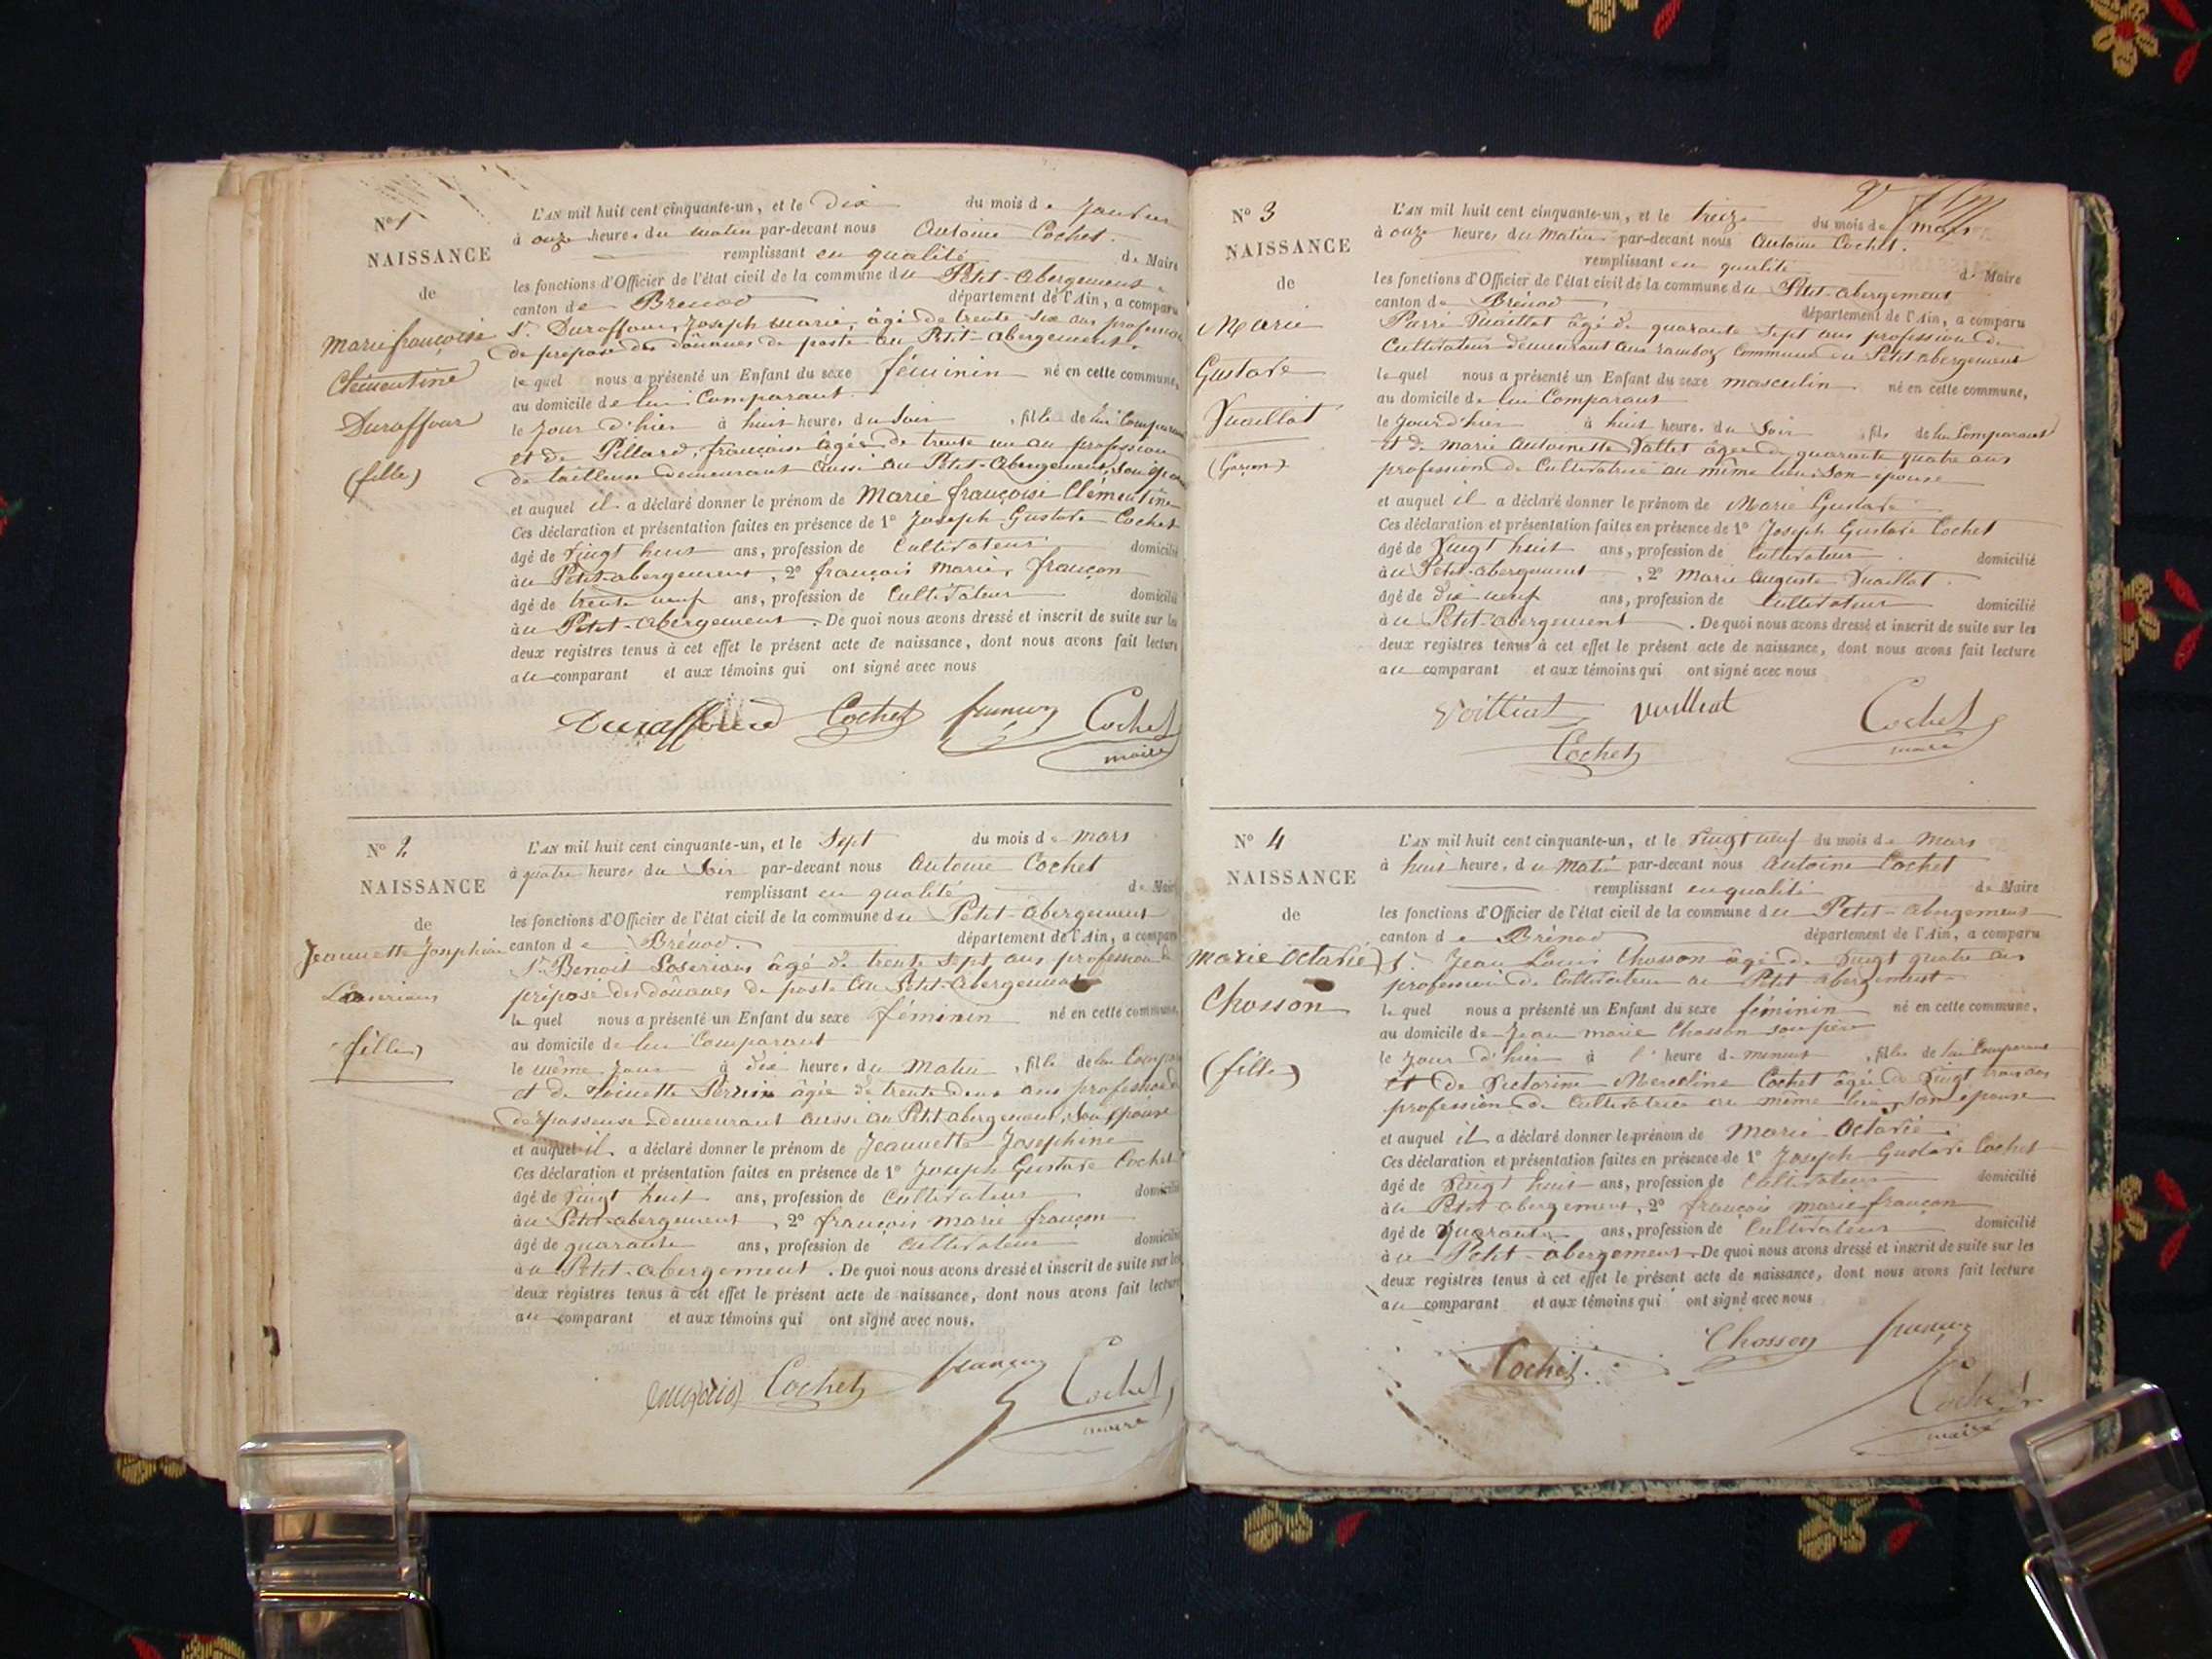 N° 1
NAISSANCE
de
Marie françoise
Clémentine
Duraffour
(fille)
L'AN mil huit cent cinquante-un, et le dix du mois de Janvier
à onze heures du matin par-devant nous Antoine Cochet.
remplissant en qualité de Maire
les fonctions d'Officier de l'état civil de la commune du Petit-abergement
canton de Brenod département de l'Ain, a comparu
Sr. Duraffour, Joseph marie, âgé de trente six ans profession
de préposé des douanes de poste au Petit-abergement.
lequel nous a présenté un Enfant du sexe féminin né en cette commune,
au domicile de lui Comparant
le Jour d'hier à huit heures du Soir, fille de lui Comparant
et de Pillard, françoise âgée de trente un an profession
de tailleuse demeurant aussi au Petit-abergement, son épouse
et auquel il a déclaré donner le prénom de Marie françoise Clémentine
Ces déclaration et présentation faites en présence de 1° Joseph Gustave Cochet
âgé de Vingt huit ans, profession de Cultivateur domicilié
au Petit-abergement, 2° françois marie françon
âgé de trente neuf ans, profession de Cultivateur domicilié
au Petit-abergement. De quoi nous avons dressé et inscrit de suite sur les
deux registres tenus à cet effet le présent acte de naissance, dont nous avons fait lecture
au comparant et aux témoins qui ont signé avec nous
Duraffourd Cochet françon Cochet
maire
N° 2
NAISSANCE
de
Jeannette Joséphine
fille)
L'AN mil huit cent cinquante-un, et le Sept du mois de mars
à quatre heures du Soir par-devant nous Antoine Cochet
remplissant en qualité de Maire
les fonctions d'Officier de l'état civil de la commune du Petit-abergement
canton de Brénod. département de l'Ain, a comparu
Sr. Benoit âgé de trente Sept ans profession de
préposé des douanes de poste au Petit-abergement
lequel nous a présenté un Enfant du sexe féminin né en cette commune,
au domicile de lui Comparant
le même Jour à dix heures du Matin, fille de lui Comparant
et de Perrin âgée de trente deux ans profession
demeurant aussi au Petit abergement, Son épouse
et auquel il a déclaré donner le prénom de Jeannette Joséphine
Ces déclaration et présentation faites en présence de 1° Joseph Gustave Cochet
âgé de Vingt huit ans, profession de Cultivateur domicilié
au Petit-abergement, 2° françois marie françon
âgé de quarante ans, profession de Cultivateur domicilié
au Petit-abergement. De quoi nous avons dressé et inscrit de suite sur les
deux registres tenus à cet effet le présent acte de naissance, dont nous avons fait lecture
au comparant et aux témoins qui ont signé avec nous.
Cochet françon Cochet
maire
N° 3
NAISSANCE
de
Marie
Gustave
Vuaillat
(Garçon)
L'AN mil huit cent cinquante-un, et le treize du mois de mars
à onze heures du Matin par-devant nous Antoine Cochet.
remplissant en qualité de Maire
les fonctions d'Officier de l'état civil de la commune du Petit-abergement
canton de Brénod département de l'Ain, a comparu
Pierre Vuaillat âgé de quarante Sept ans profession de
Cultivateur demeurant aux Commune du Petit abergement
lequel nous a présenté un Enfant du sexe masculin né en cette commune,
au domicile de lui Comparant
le Jour d'hier à huit heures du Soir, fils de lui Comparant
et de marie Antoinette Vallet âgée de quarante quatre ans
profession de Cultivatrice au même lieu, Son épouse
et auquel il a déclaré donner le prénom de Marie Gustave
Ces déclaration et présentation faites en présence de 1° Joseph Gustave Cochet
âgé de Vingt huit ans, profession de Cultivateur domicilié
au Petit-abergement, 2° Marie Auguste Vuaillat.
âgé de dix neuf ans, profession de Cultivateur domicilié
au Petit-abergement. De quoi nous avons dressé et inscrit de suite sur les
deux registres tenus à cet effet le présent acte de naissance, dont nous avons fait lecture
au comparant et aux témoins qui ont signé avec nous
Cochet
Cochet
maire
N° 4
NAISSANCE
de
Marie Octavie
Chosson
(fille)
L'AN mil huit cent cinquante-un, et le Vingt neuf du mois de Mars
à huit heures du Matin par-devant nous Antoine Cochet
remplissant en qualité de Maire
les fonctions d'Officier de l'état civil de la commune du Petit-abergement
canton de Brénod département de l'Ain, a comparu
Sr. Jean Louis Chosson âgé de Vingt quatre ans
profession de Cultivateur au Petit abergement
lequel nous a présenté un Enfant du sexe féminin né en cette commune,
au domicile de Jean marie Chosson son père
le Jour d'hier à l'heure de minuit, fille de lui Comparant
et de Victorine Marceline Cochet âgée de Vingt trois ans
profession de Cultivatrice au même lieu, Son épouse
et auquel il a déclaré donner le prénom de Marie Octavie.
Ces déclaration et présentation faites en présence de 1° Joseph Gustave Cochet
âgé de Vingt huit ans, profession de Cultivateur domicilié
au Petit abergement, 2° françois marie françon
âgé de quarante ans, profession de Cultivateur domicilié
au Petit-abergement. De quoi nous avons dressé et inscrit de suite sur les
deux registres tenus à cet effet le présent acte de naissance, dont nous avons fait lecture
au comparant et aux témoins qui ont signé avec nous
Cochet. Chosson françon
Cochet
maire